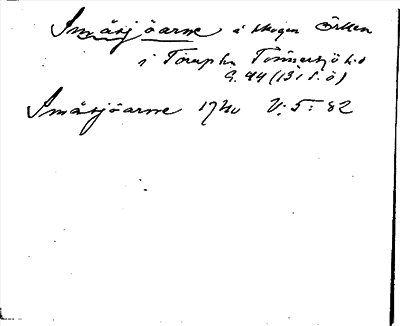 Småsjöarne å skogen Örken
i Torup Tönnersjö hd
G. 44 (13 i S. ö)
Småsjöarne 1740 V: 5: 82